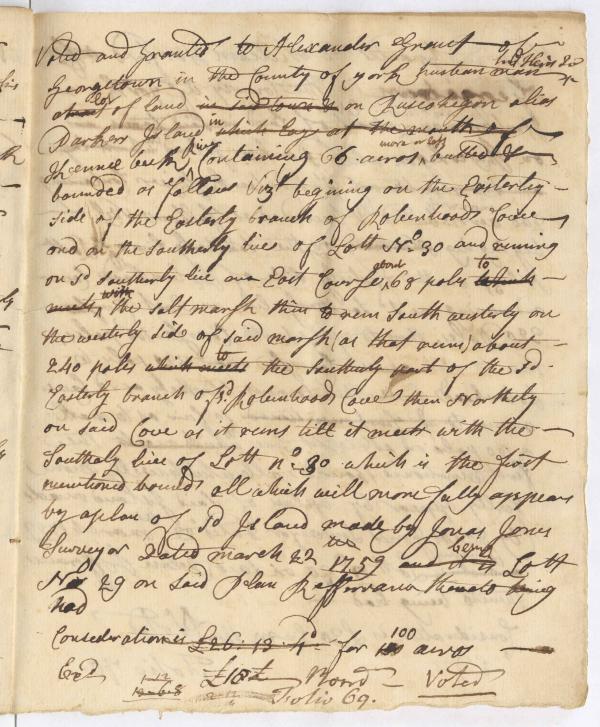 Voted and Granted to Alexander Grout of
Georgetown in the County of york husbandman his Heirs &c
a Lot of land in said town is on Rascohegon alias
Parkers Island in which lays at the mouth of
Kennebeck river Containing 66 acres more or less butted &
bounded as follows Vizt begining on the Easterly
side of the Easterly branch of Robenhoods Cove
and on the Southerly line of Lott No. 30 and runing
on sd Southerly line an East Course about 68 poles to which
meets with the salt marsh then to run South westerly on
the westerly side of said marsh (as that runs) about
240 poles which meets to the Southerly part of the sd
Easterly branch of sd. Robenhoods Cove then Northerly
on said Cove as it runs till it meets with the
Southerly line of Lott no. 30 which is the first
mentioned bounds all which will more fully appear
by a plan of sd Island made by Jonas Jones
Surveyor Dated march 22 1759 and it is being Lott
No 29 on said Plan Refferance thereto being
had
Consideration is £26.13.4d for 100 acres
Exd £18 Record Voted
Folio 69.